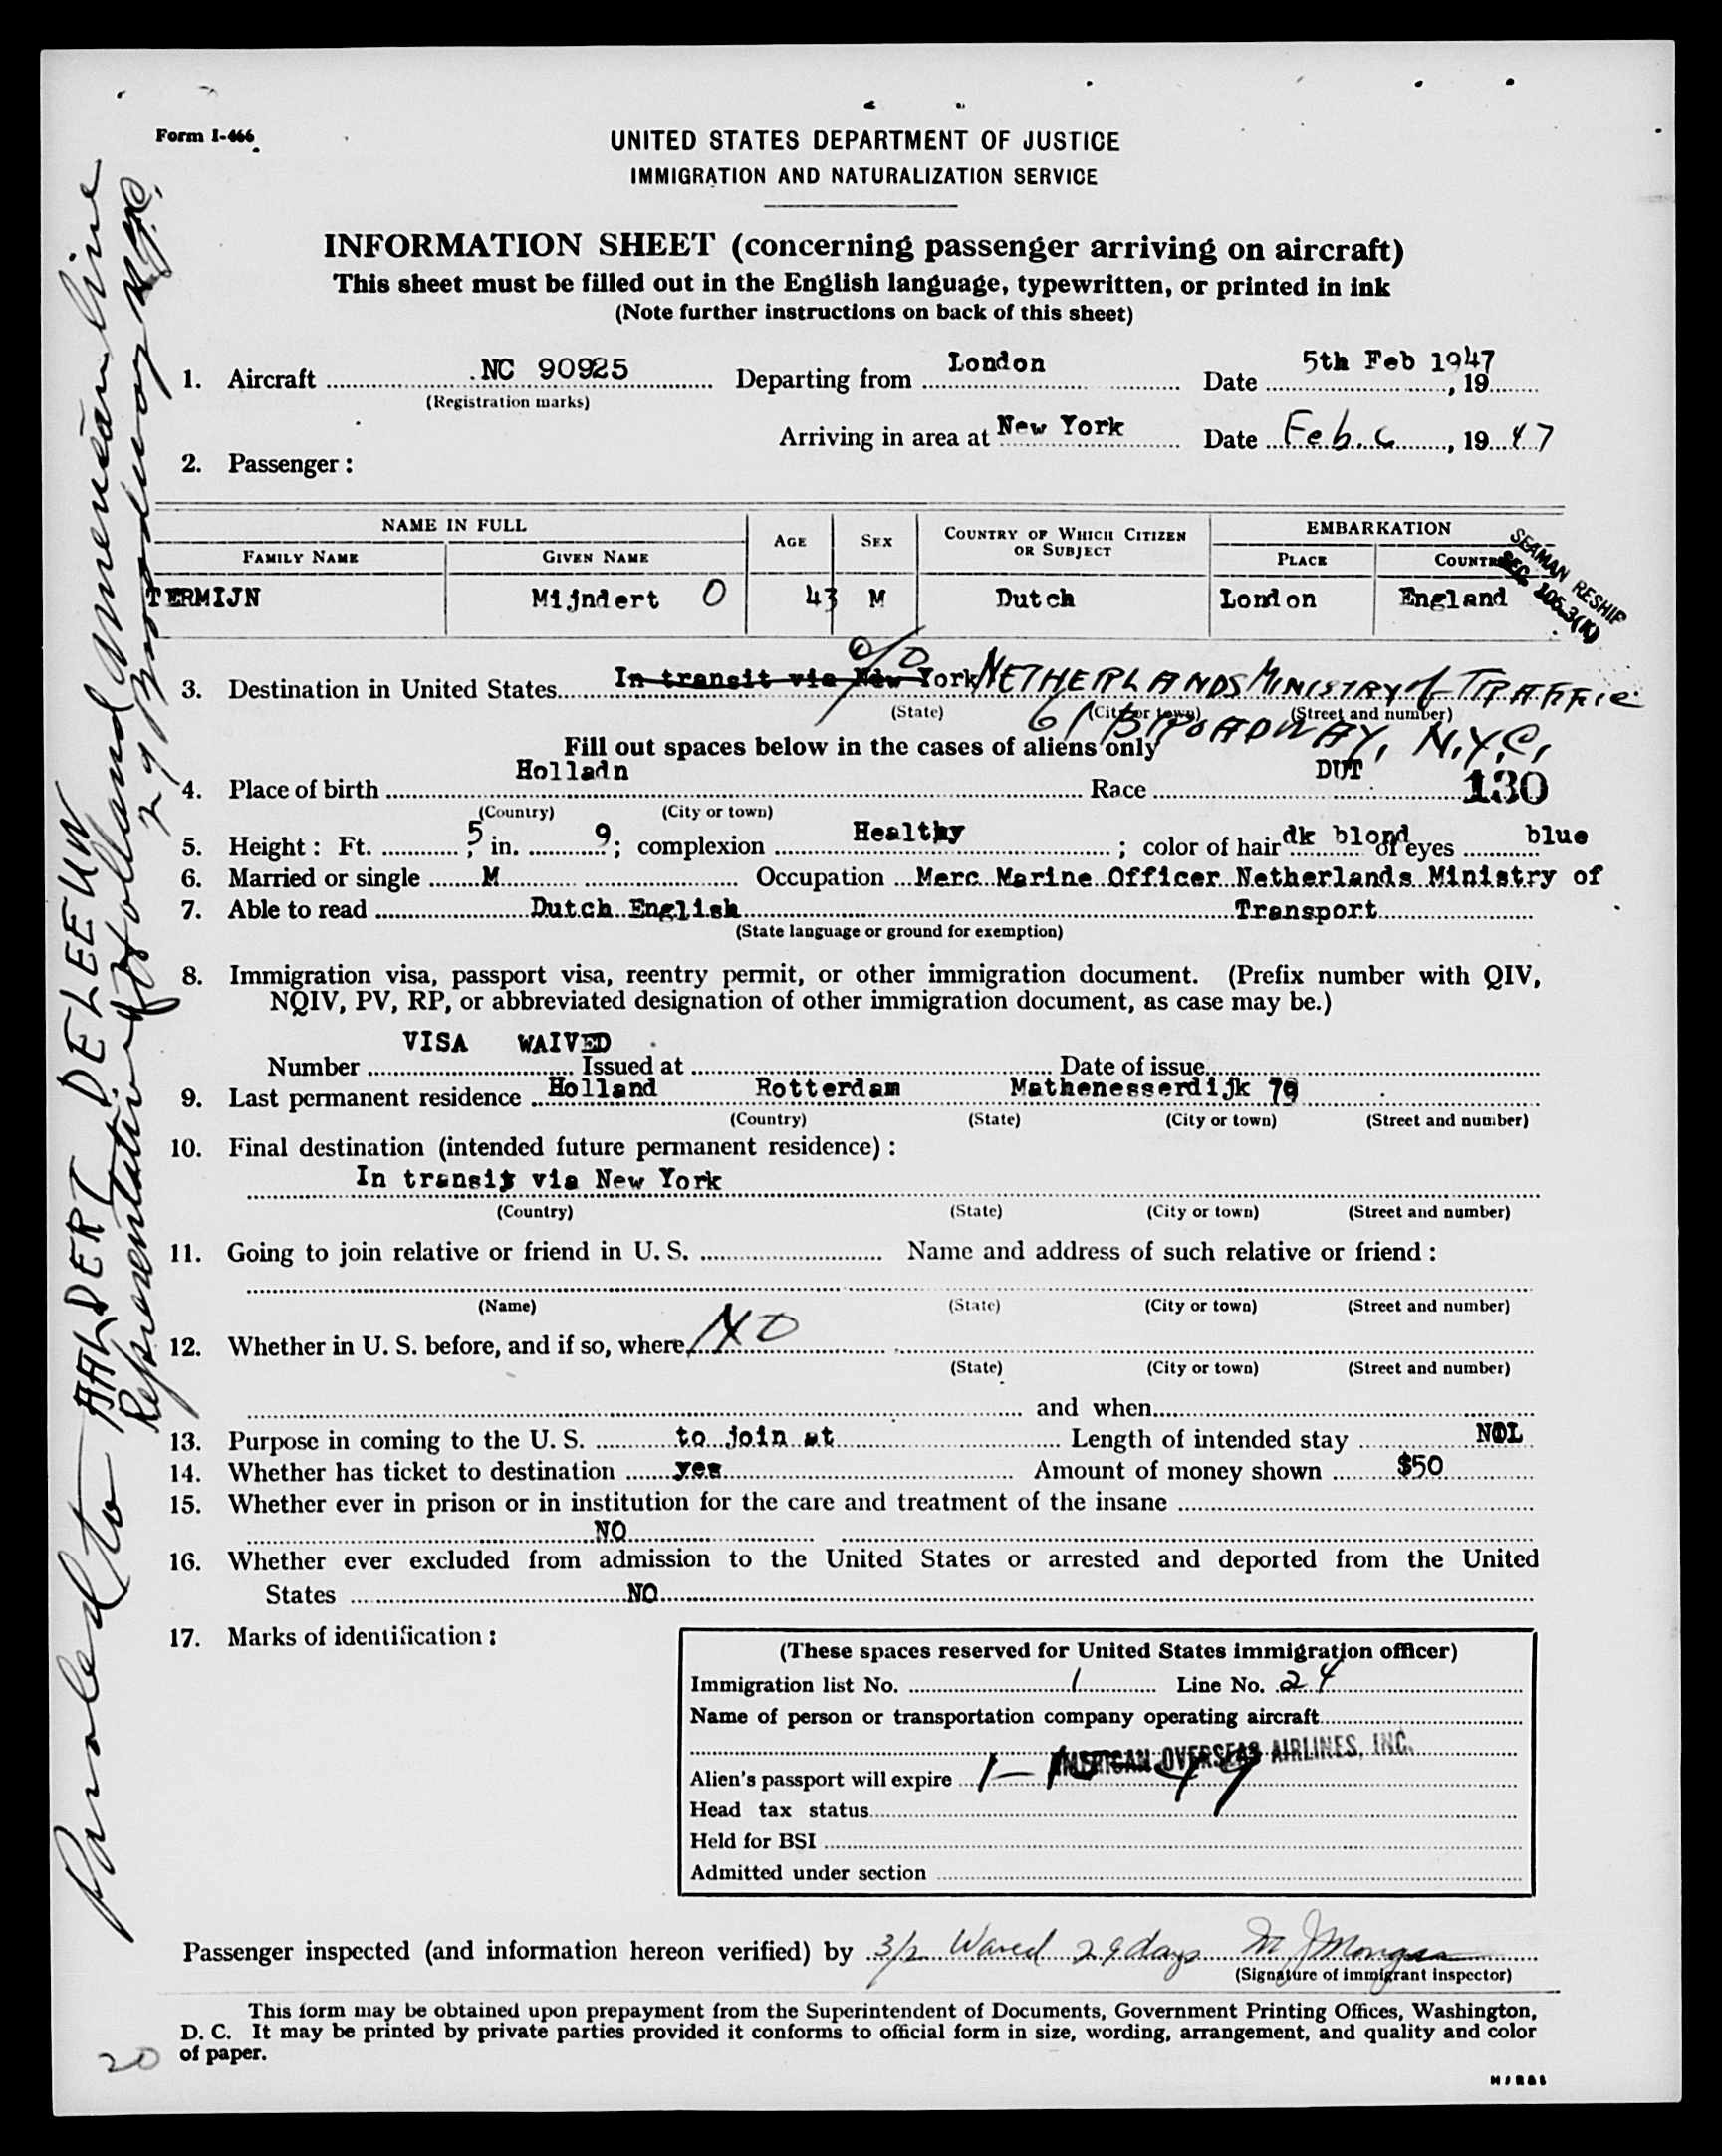 Form I-466
UNITED STATES DEPARTMENT OF JUSTICE
IMMIGRATION AND NATURALIZATION SERVICE
INFORMATION SHEET (concerning passenger arriving on aircraft)
This sheet must be filled out in the English language, typewritten, or printed in ink
(Note further instructions on back of this sheet)
1. Aircraft NC 90925 Departing from London Date 5th Feb 1947, 19
(Registration marks)
Arriving in area at New York Date Feb. 6, 1947
2. Passenger:
NAME IN FULL AGE SEX COUNTRY OF WHICH CITIZEN OR SUBJECT EMBARKATION
FAMILY NAME GIVEN NAME PLACE COUNTRY
SEAMAN RESHIP
SEC. 105.3(K)
TERMIJN Mijndert O 43 M Dutch London England
c/o
3. Destination in United States In transit via New York NETHERLANDS MINISTRY of TRAFFIC
(State) (City or town) (Street and number)
61 BROADWAY, N.Y.C.
Fill out spaces below in the cases of aliens only
4. Place of birth Holladn Race DUT 130
(Country) (City or town)
5. Height: Ft. 5; in. 9; complexion Healthy; color of hair dk blond of eyes blue
6. Married or single M Occupation Merc Marine Officer Netherlands Ministry of
7. Able to read Dutch English Transport
(State language or ground for exemption)
8. Immigration visa, passport visa, reentry permit, or other immigration document. (Prefix number with QIV,
NQIV, PV, RP, or abbreviated designation of other immigration document, as case may be.)
VISA WAIVED
Number Issued at Date of issue
9. Last permanent residence Holland Rotterdam Mathenesserdijk
(Country) (State) (City or town) (Street and number)
10. Final destination (intended future permanent residence):
In transit via New York
(Country) (State) (City or town) (Street and number)
11. Going to join relative or friend in U. S. Name and address of such relative or friend:
(Name) (State) (City or town) (Street and number)
12. Whether in U. S. before, and if so, where NO
(State) (City or town) (Street and number)
and when
13. Purpose in coming to the U. S. to join at Length of intended stay
14. Whether has ticket to destination yes Amount of money shown $50
15. Whether ever in prison or in institution for the care and treatment of the insane
NO
16. Whether ever excluded from admission to the United States or arrested and deported from the United
States NO
17. Marks of identification:
(These spaces reserved for United States immigration officer)
Immigration list No. 1 Line No. 24
Name of person or transportation company operating aircraft
AMERICAN OVERSEAS AIRLINES, INC.
Alien's passport will expire
Head tax status
Held for BSI
Admitted under section
Passenger inspected (and information hereon verified) by 3/2 Waved 29 days M J Morgan
(Signature of immigrant inspector)
This form may be obtained upon prepayment from the Superintendent of Documents, Government Printing Offices, Washington,
D. C. It may be printed by private parties provided it conforms to official form in size, wording, arrangement, and quality and color
of paper.
20
Paroled to AALDERT DELEEUW
Representative of Holland American Line
29 Broadway N.Y.C.